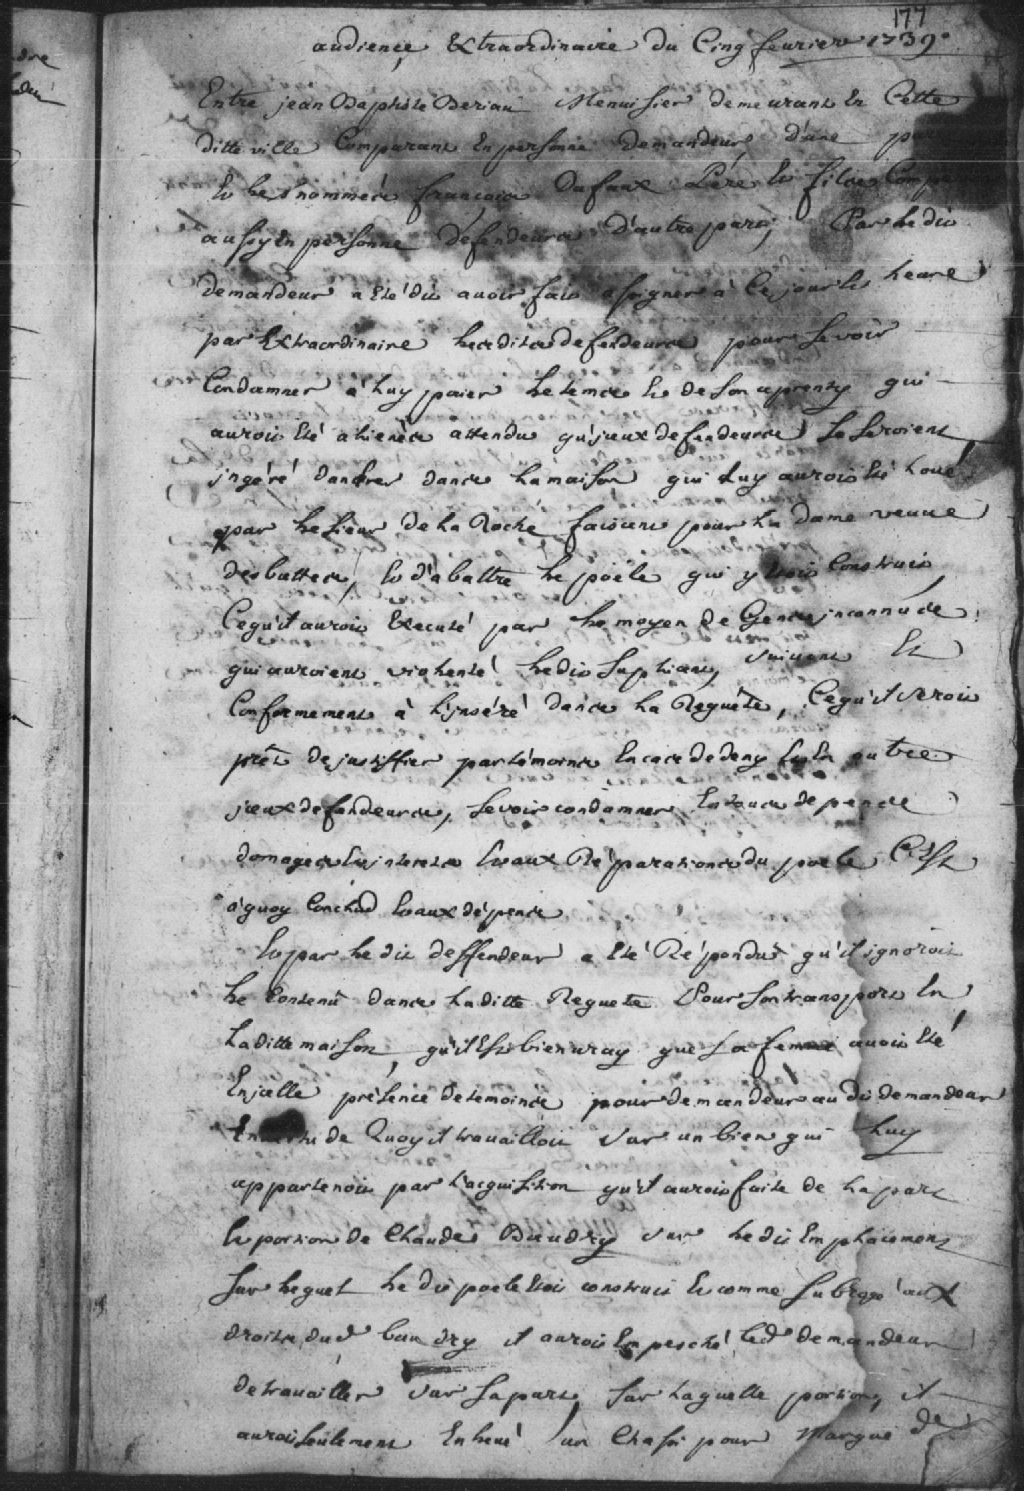 177
audience Extraordinaire du Cinq feurier 1739
Entre jean Baptiste Deriau Menuisier demeurant En Cette
ditte ville Comparant En personne demandeur d'une par
Et les nommés françois Dufaux Pére Et fils Compa
aussy En personne defendeurs d'autre part, Par le dit
demandeur a Eté dit avoir fait assigner à Ce jour Et heure
par Extraordinaire les dits defendeurs pour se voir
Condamner à luy paier le tems Et de son aprenty qui
auroit Eté attendu qu'jeux defendeurs se seroient
jngéré dantrer dans la maison qui Luy auroit Eté Loué
par le Sieur de la Roche faisant pour la dame veuve
desbuttes, Et d'abattre le poële qui y Etoit Construit,
Cequ'il auroit Executé par le moyen de Gens jnconnu de
qui auroient violenté ledit supliant, suivant Et
Conformement à L'jnséré dans la Requête, Cequ'il seroit
prêt de justiffier par témoins En cas de deny Et En outre
jeux defendeurs, se voir condamner En tous depens
domages Et jnterets Et aux Réparations du poele C'Est
à quoy Conclud Et aux dépens
Et par le dit deffendeur a Eté Répondu qu'il ignoroit
le Contenu dans laditte Requete Pour son transport En
laditte maison, qu'il Est bien vray que sa femme avoit Eté
En jcelle présence de temoins pour demander au dit demandeur
En vertu de Quoy il travailloit sur un bien qui Luy
appartenoit par l'acquisition qu'il auroit faite de la part
Et portion de Claude Baudry sur le dit Emplacement
sur lequel le dit poele Etoit construit Et comme subrogé aux
droits dud baudry il auroit Empesché led demandeur
de travailler sur sa part, sur laquelle portion, il
auroit seulement Enlevé un Chassi pour Marque de